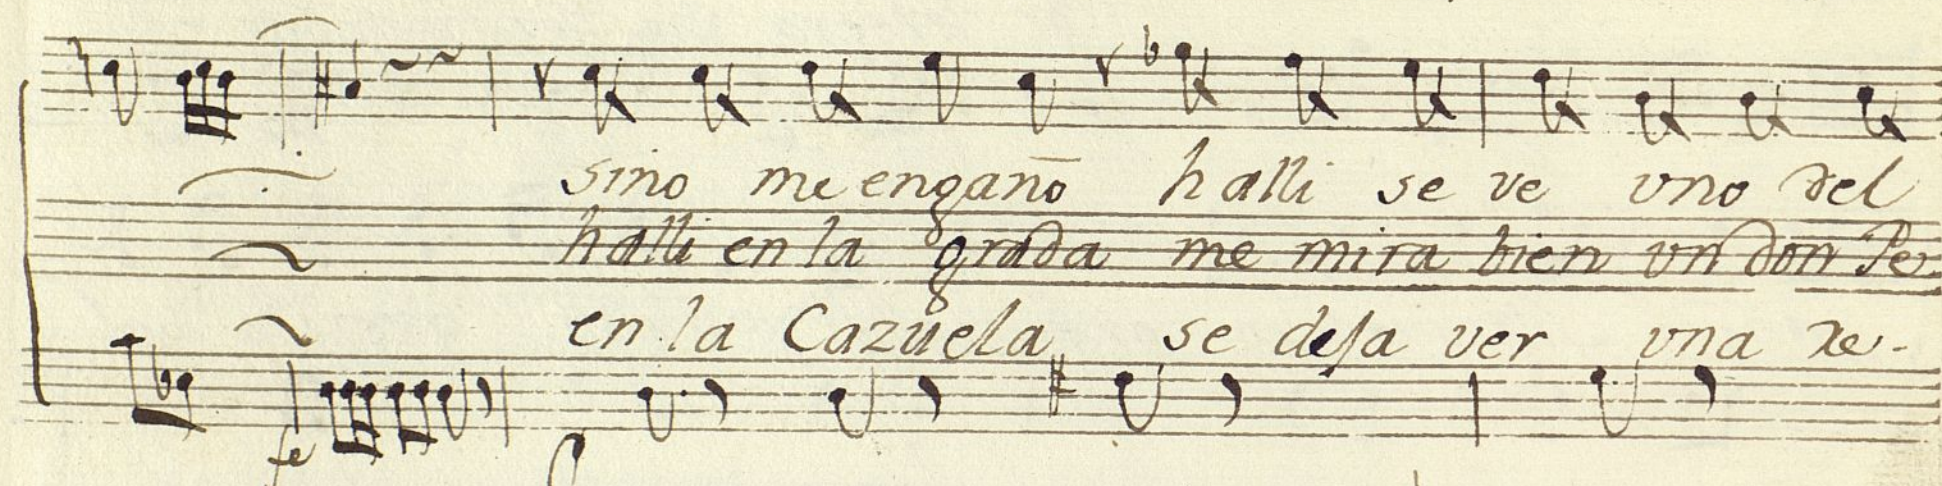 sino me engaño halli se ve vno del
halli en la grada me mira bien vn don Pe
en la Cazuela se deja ver vna re-
fe
p